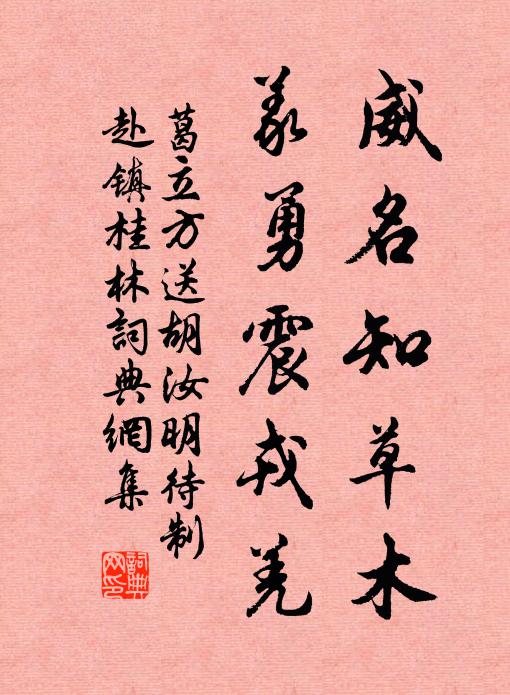 威名知草木
義勇震戎羌
葛立方送胡汝明待制
赴镇桂林詞典網集
詞典
网印